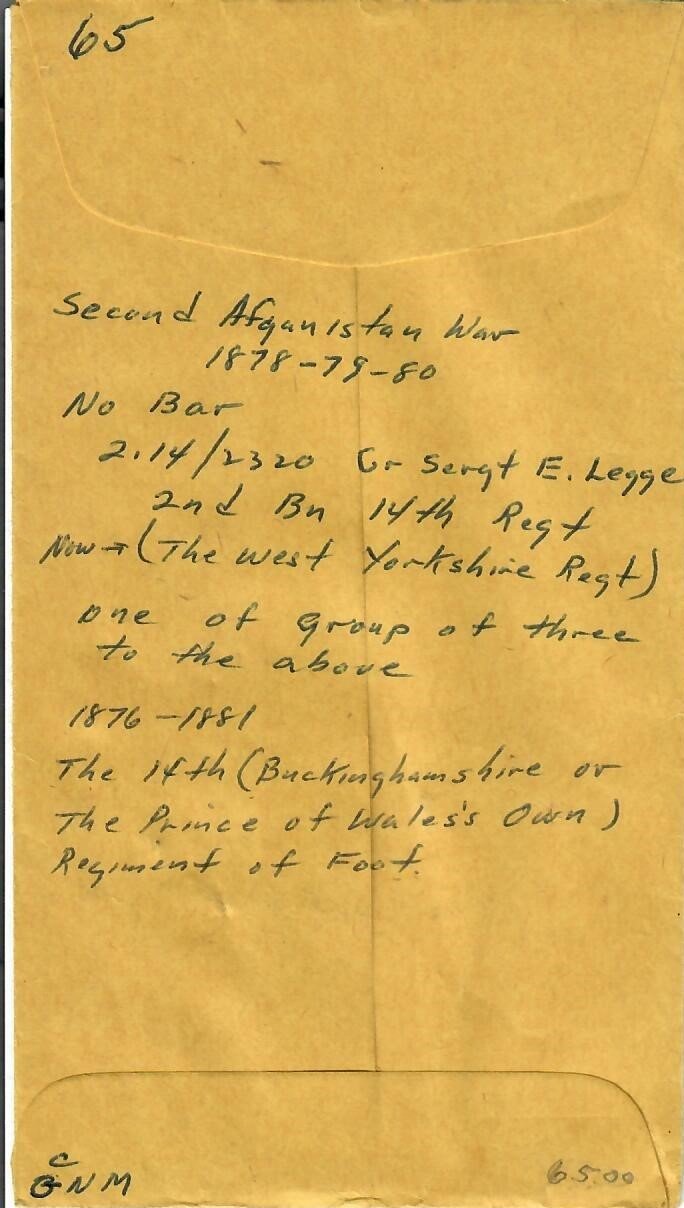 65
Second Afganistan War
1878-79-80
No Bar
2.14/2320 Cr Sergt E. Legge
2nd Bn 14th Regt
Now → (The West Yorkshire Regt)
one of group of three
to the above
1876-1881
The 14th (Buckinghamshire or
The Prince of Wales's Own)
Regiment of Foot.
NM
65.00